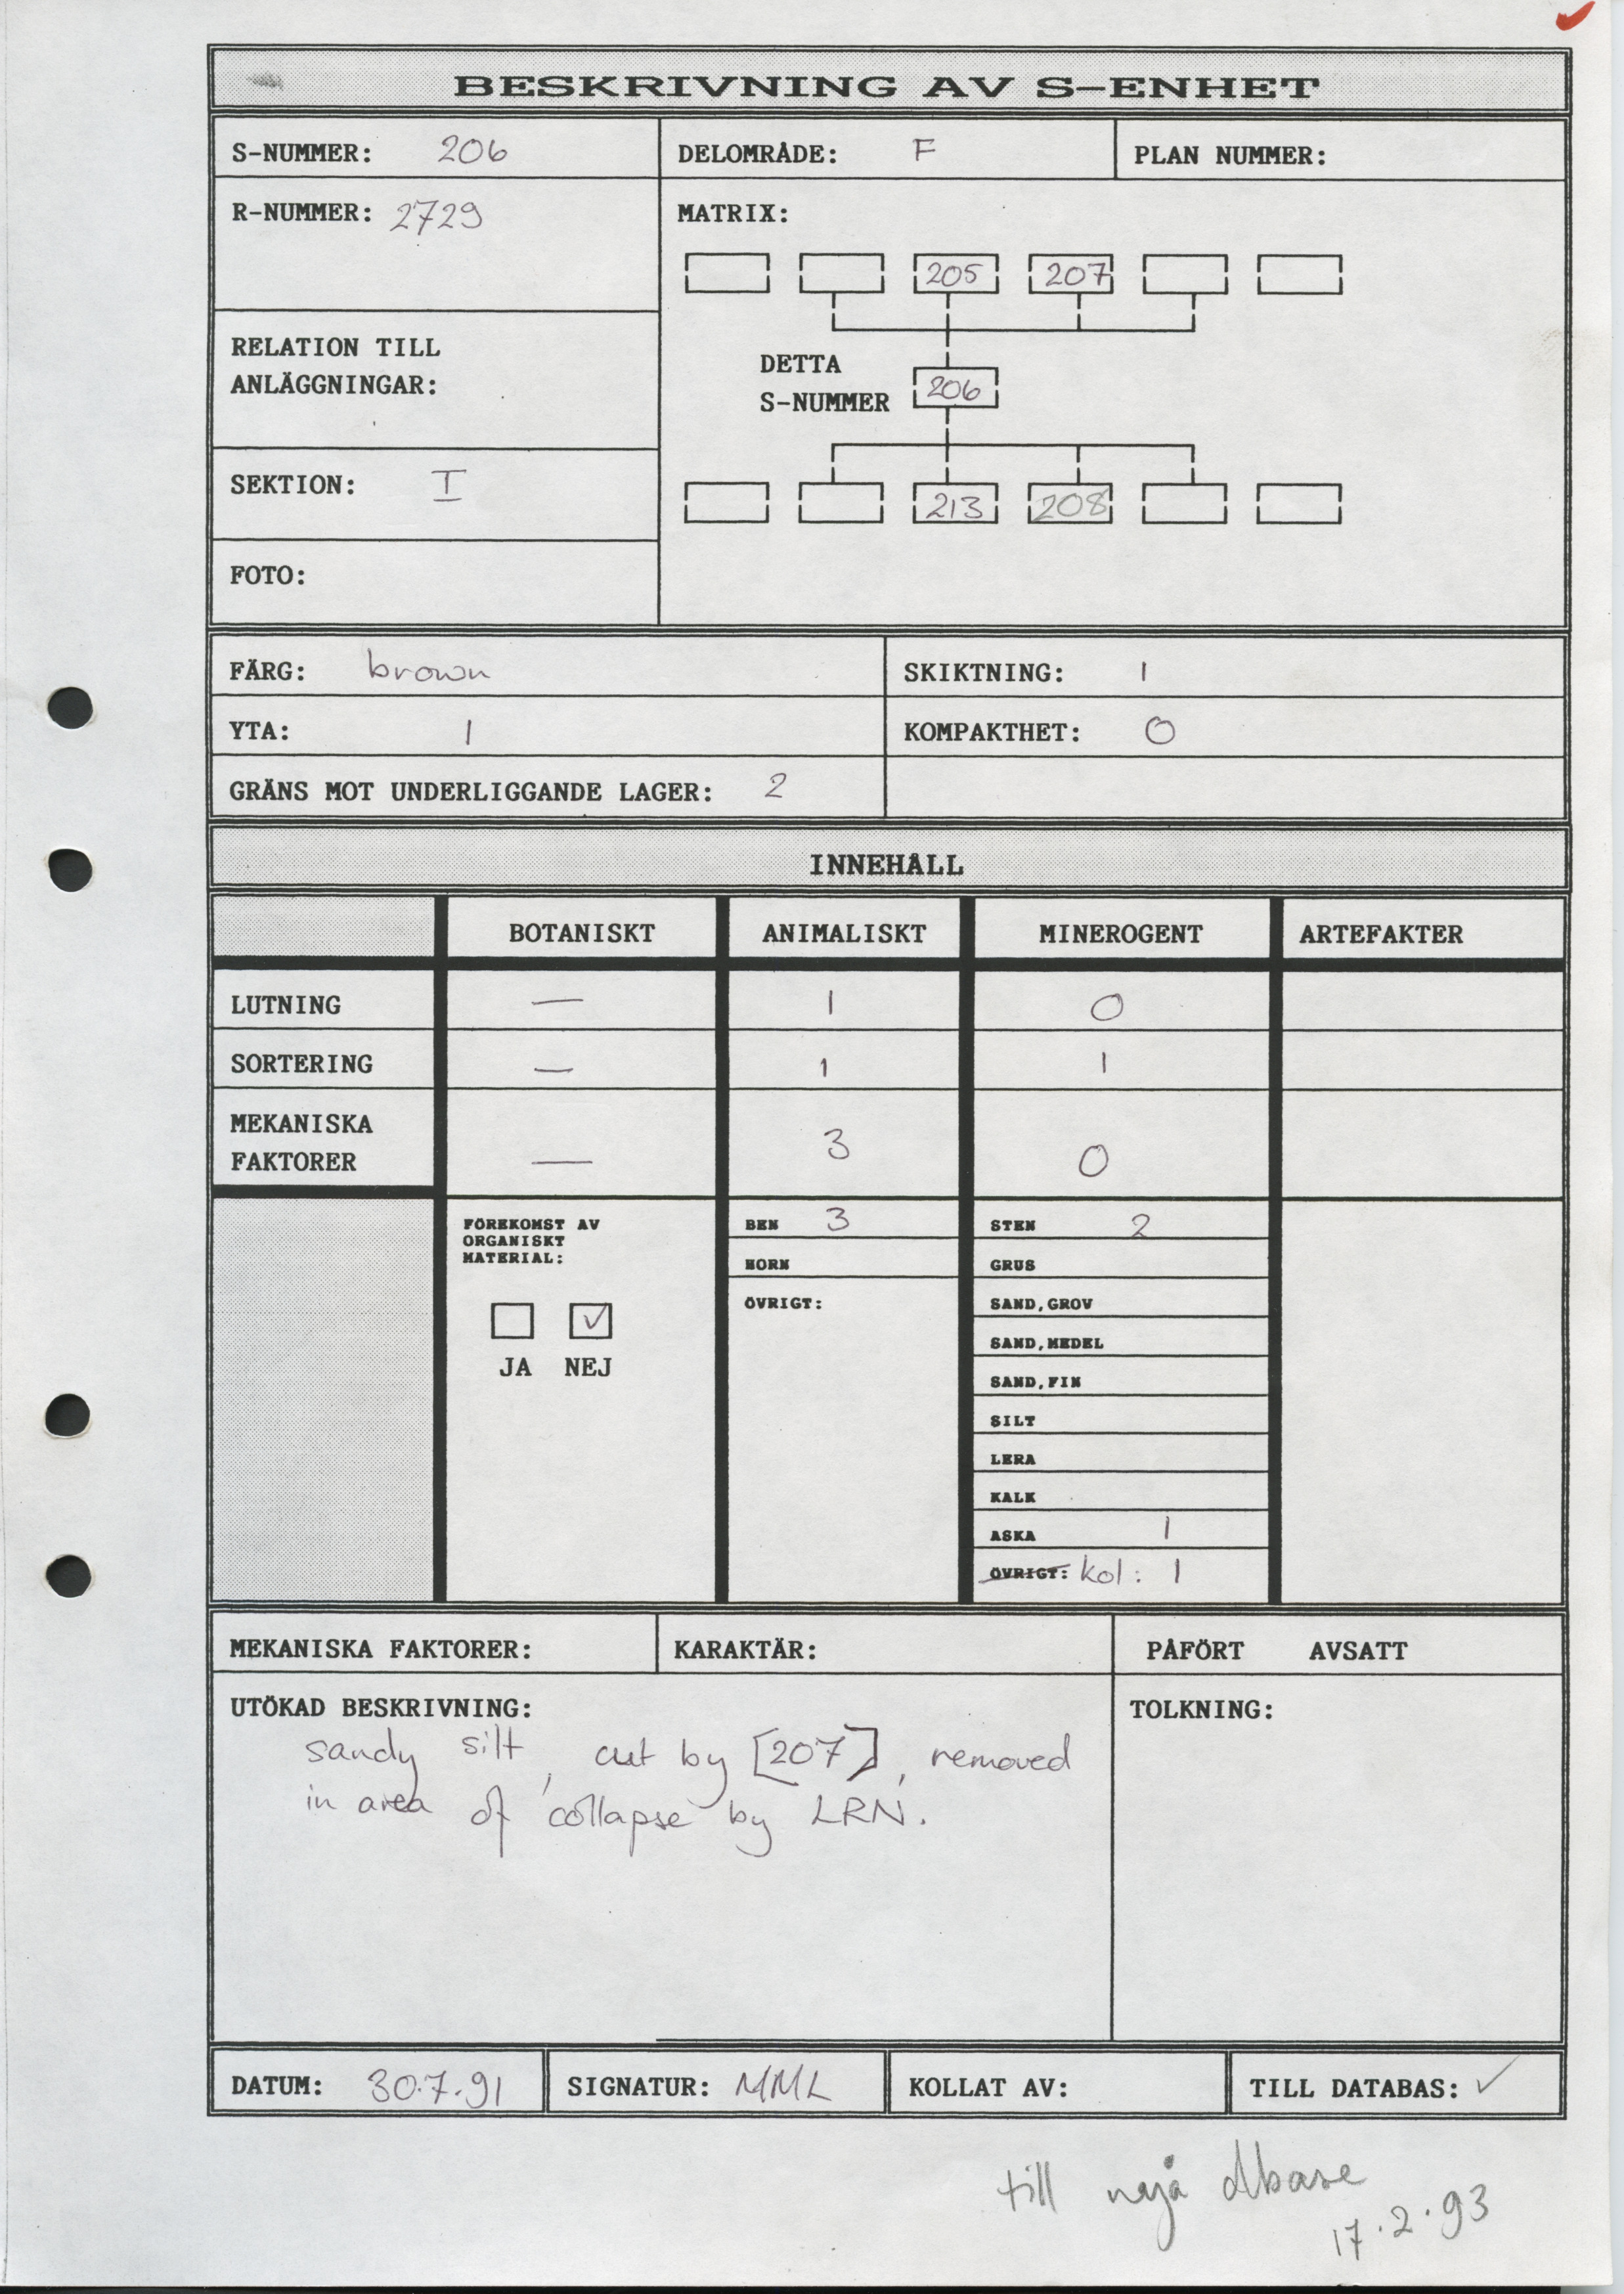 BESKRIVNING AV S-ENHET
S-NUMMER: 206
DELOMRÅDE: F
PLAN NUMMER:
R-NUMMER: 2729
MATRIX:
205 207
RELATION TILL
ANLÄGGNINGAR:
DETTA
S-NUMMER 206
SEKTION: I
213 208
FOTO:
FÄRG: brown
SKIKTNING: 1
YTA: 1
KOMPAKTHET: 0
GRÄNS MOT UNDERLIGGANDE LAGER: 2
INNEHÅLL
BOTANISKT ANIMALISKT MINEROGENT ARTEFAKTER
LUTNING — 1 0
SORTERING — 1 1
MEKANISKA
FAKTORER — 3 0
FÖREKOMST AV
ORGANISKT
MATERIAL:
JA NEJ
BEN 3
HORN
ÖVRIGT:
STEN 2
GRUS
SAND, GROV
SAND, MEDEL
SAND, FIN
SILT
LERA
KALK
ASKA 1
ÖVRIGT: kol: 1
MEKANISKA FAKTORER:
KARAKTÄR:
PÅFÖRT AVSATT
UTÖKAD BESKRIVNING:
sandy silt, cut by [207], removed
in area of collapse by LRN.
TOLKNING:
DATUM: 30.7.91
SIGNATUR: MML
KOLLAT AV:
TILL DATABAS: ✓
till dbase
17.2.93